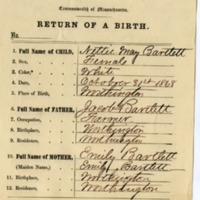 Commonwealth of Massachusetts.
RETURN OF A BIRTH.
No.
1. Full Name of CHILD, Nettie May Bartlett
2. Sex, Female
3. Color,* White
4. Date, October 31st 1868
5. Place of Birth, Worthington
6. Full Name of FATHER, Jacob Bartlett
7. Occupation, Farmer
8. Birthplace, Worthington
9. Residence, Worthington
10. Full Name of MOTHER, Emily Bartlett
(Maiden Name.) Emily Bartlett
11. Birthplace, Worthington
12. Residence, Worthington